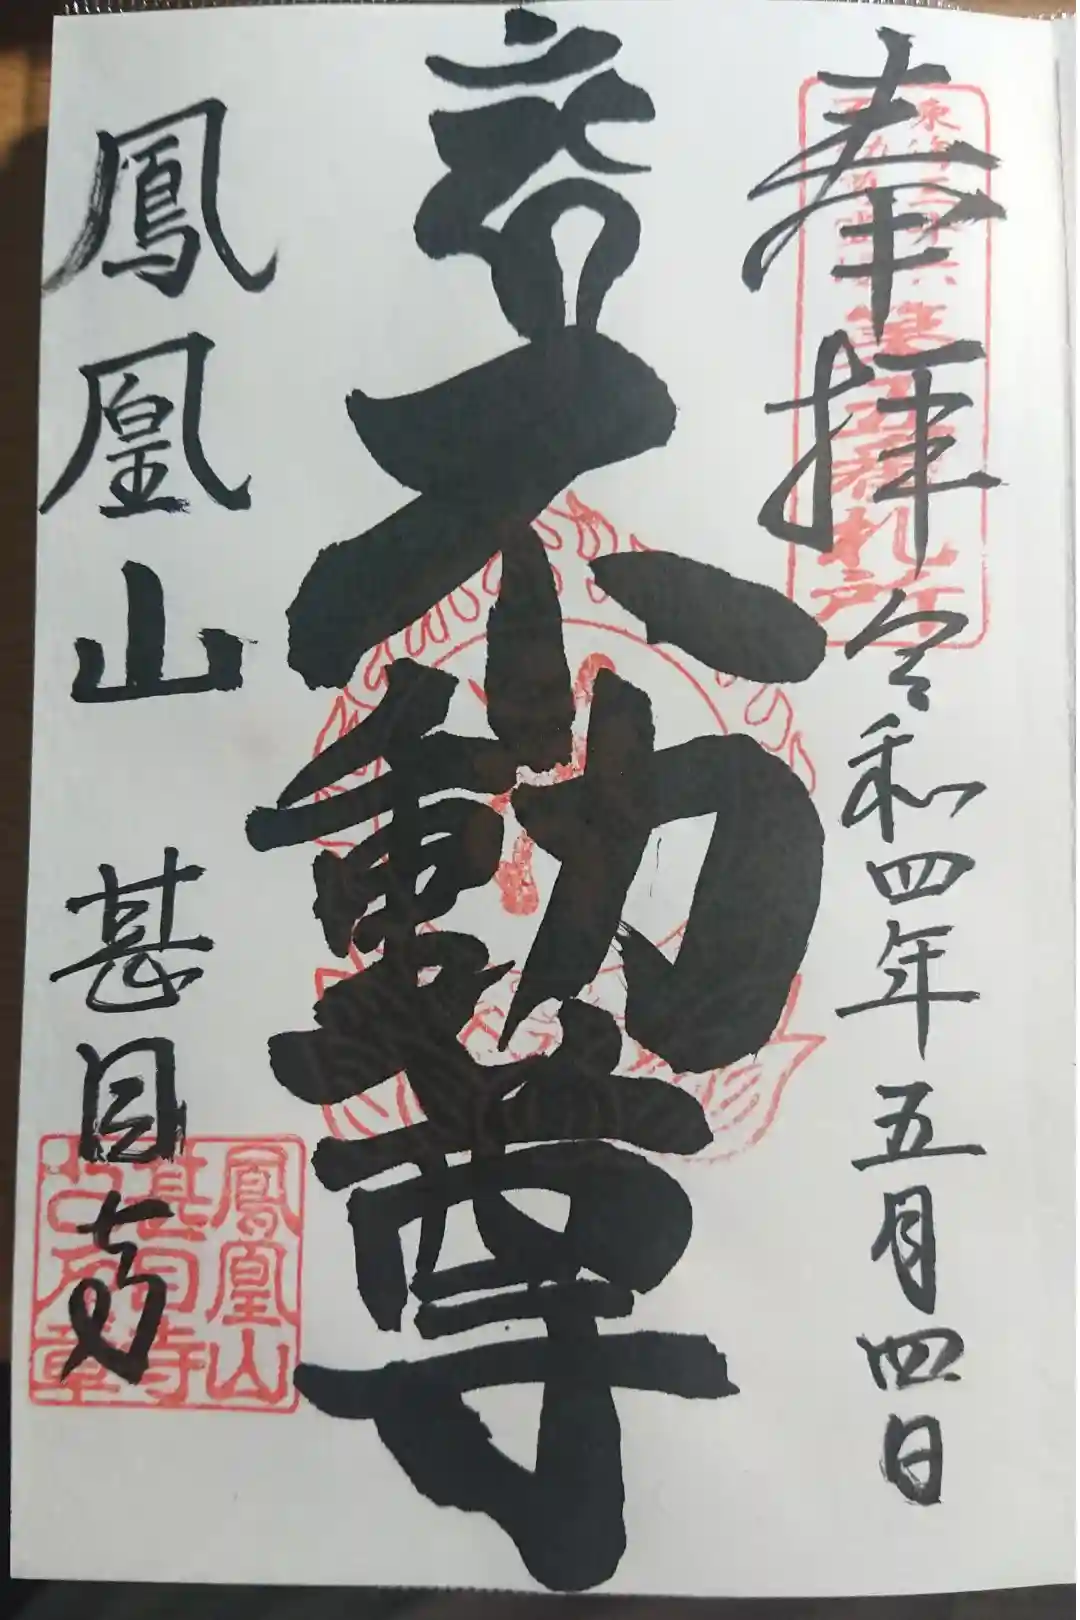 奉拝 令和四年五月四日
不動尊
鳳凰山 甚目寺
番札所
鳳凰山
甚目寺